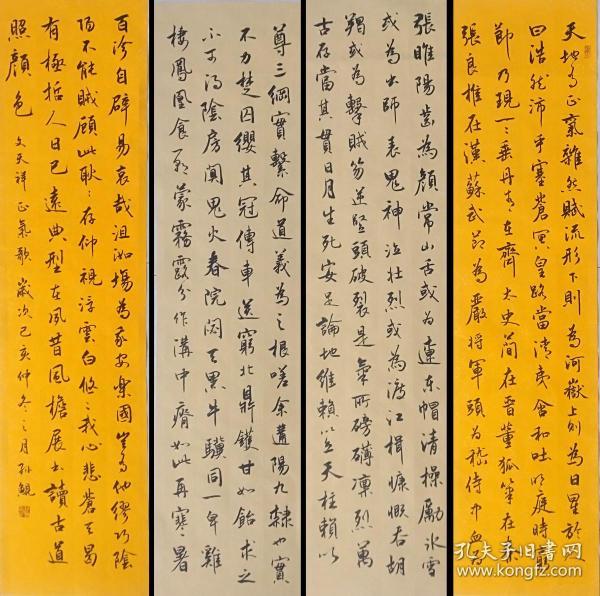 天地有正氣雜然賦流形下則為河嶽上則為日星於
曰浩然沛乎塞蒼冥皇路當清夷含和吐明庭時窮
節乃現一一垂丹青在齊太史簡在晉董狐筆在秦
張良椎在漢蘇武節為嚴將軍頭為嵇侍中血為
張睢陽齒為顏常山舌或為遼東帽清操勵冰雪
或為出師表鬼神泣壯烈或為渡江楫慷慨吞胡
羯或為擊賊笏逆豎頭破裂是氣所磅礴凜烈萬
古存當其貫日月生死安足論地維賴以立天柱賴以
尊三綱實繫命道義為之根嗟余遘陽九隸也實
不力楚囚纓其冠傳車送窮北鼎鑊甘如飴求之
不可得陰房闃鬼火春院閟天黑牛驥同一皂雞
棲鳳凰食一朝蒙霧露分作溝中瘠如此再寒暑
百沴自辟易哀哉沮洳場為我安樂國豈有他繆巧陰
陽不能賊顧此耿耿存仰視浮雲白悠悠我心悲蒼天曷
有極哲人日已遠典型在夙昔風檐展書讀古道
照顏色 文天祥正氣歌 歲次己亥仲冬之月孫鯤
孔夫子旧书网
www.kongfz.com